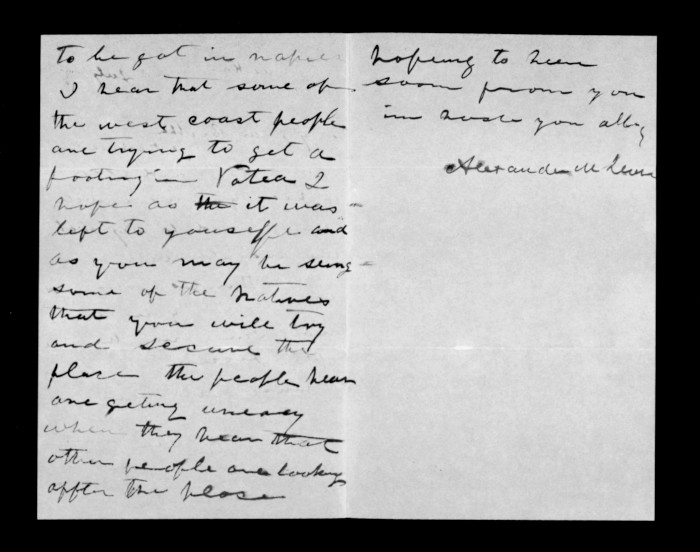 to be got in napier
I hear that some of
the west coast people
are trying to get a
footing in Patea I
hope as the it was
left to youselfe and
as you may be seing
some of the natives
that you will try
and secure the
plase the people hear
are geting uneasy
when they hear that
other people are looking
affter the plase
hoping to hear
soon from you
in haste you
Alexander